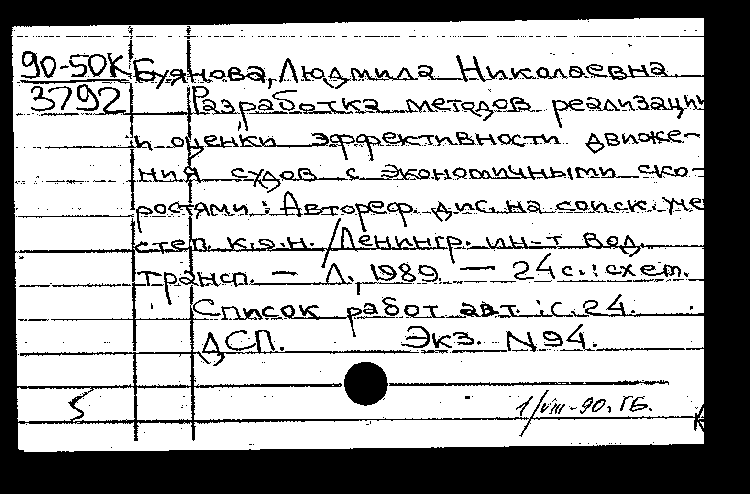 90-50К Буянова, Людмила Николаевна
3792 Разработка методов реализации
и оценки эффективности движе-
ния судов с экономичными ско-
ростями: Автореф. дис. на соиск. уче
степ. к.э.н. /Ленингр. ин-т вод.
трансп. — Л., 1989. — 24с.: схем.
Список работ авт.: с.24.
ДСП. Экз. N94.
5
1/VIII-90. ГБ.
К